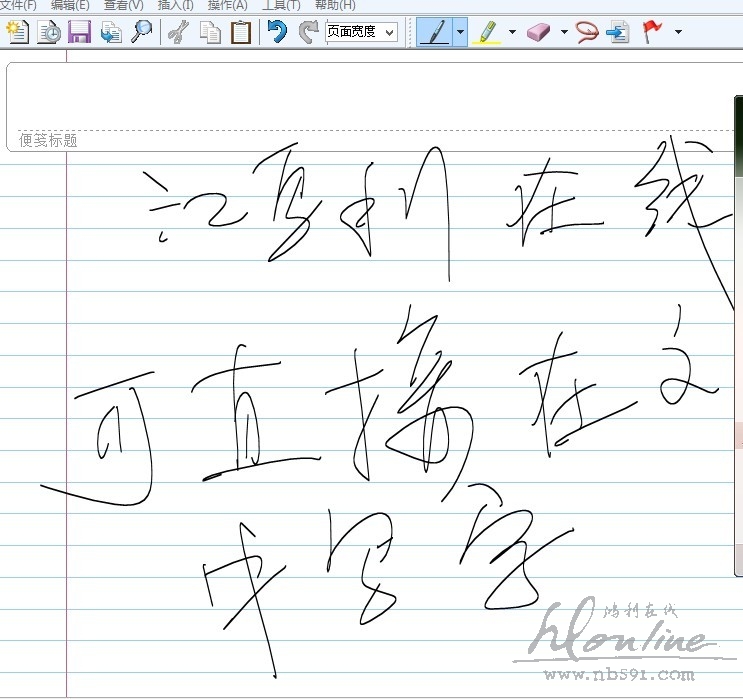 文件(F) 编辑(E) 查看(V) 插入(I) 操作(A) 工具(T) 帮助(H)
页面宽度
便笺标题
利在线
可直接在文
中写字
鸿利在线
hlonline
www.nb591.com